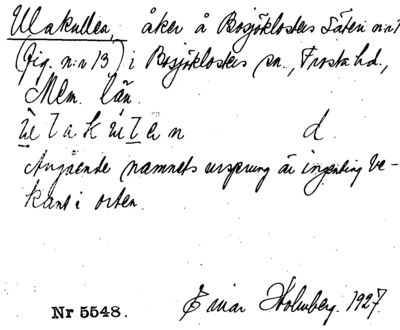 Ulakullen, åker å Bosjöklosters Säteri n:r 1
(fig. n:r 13) i Bosjöklosters sn., Frosta hd.,
Mlm. län.
d.
Angående namnets ursprung är ingenting be-
kant i orten.
Nr 5548. Einar Holmberg. 1927.